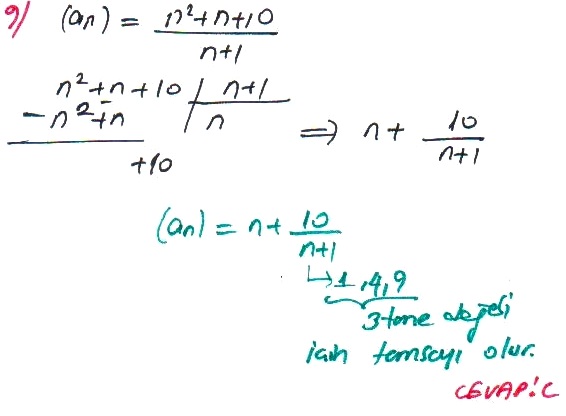 9) (an) = n²+n+10 / n+1
n²+n+10 | n+1
- n²+n | n
+10
⇒ n + 10 / n+1
(an) = n + 10 / n+1
↳ 1, 4, 9
3 tane değeri
için tamsayı olur.
CEVAP: C